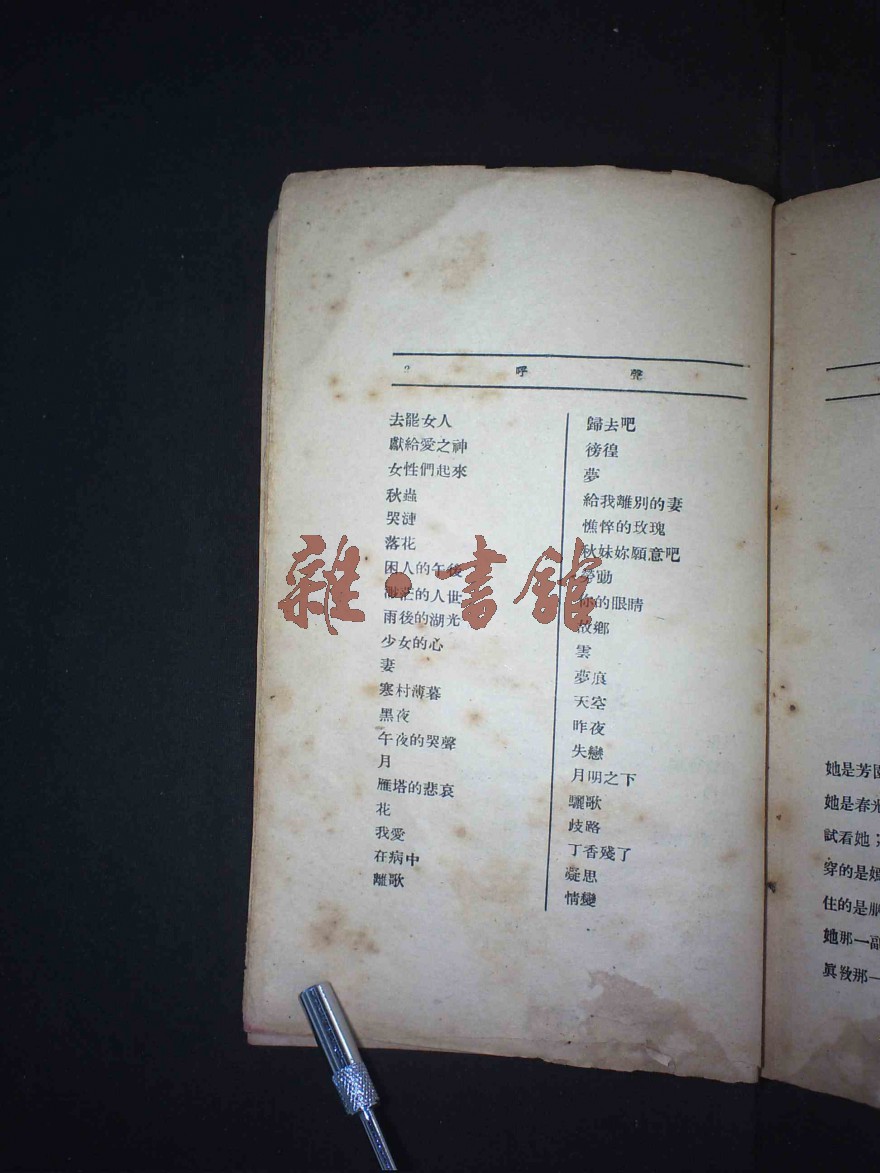 2 呼聲
去罷女人
獻給愛之神
女性們起來
秋蟲
哭漣
落花
困人的午後
茫的人世
雨後的湖光
少女的心
妻
寒村薄暮
黑夜
午夜的哭聲
月
雁塔的悲哀
花
我愛
在病中
離歌
歸去吧
徬徨
夢
給我離別的妻
憔悴的玫瑰
秋妹妳願意吧
勞動
你的眼睛
故鄉
雲
夢痕
天空
昨夜
失戀
月明之下
驪歌
歧路
丁香殘了
凝思
情變
雜·書館
她是芳
她是春光
試看她
穿的是
住的是
她那一副
真教那一